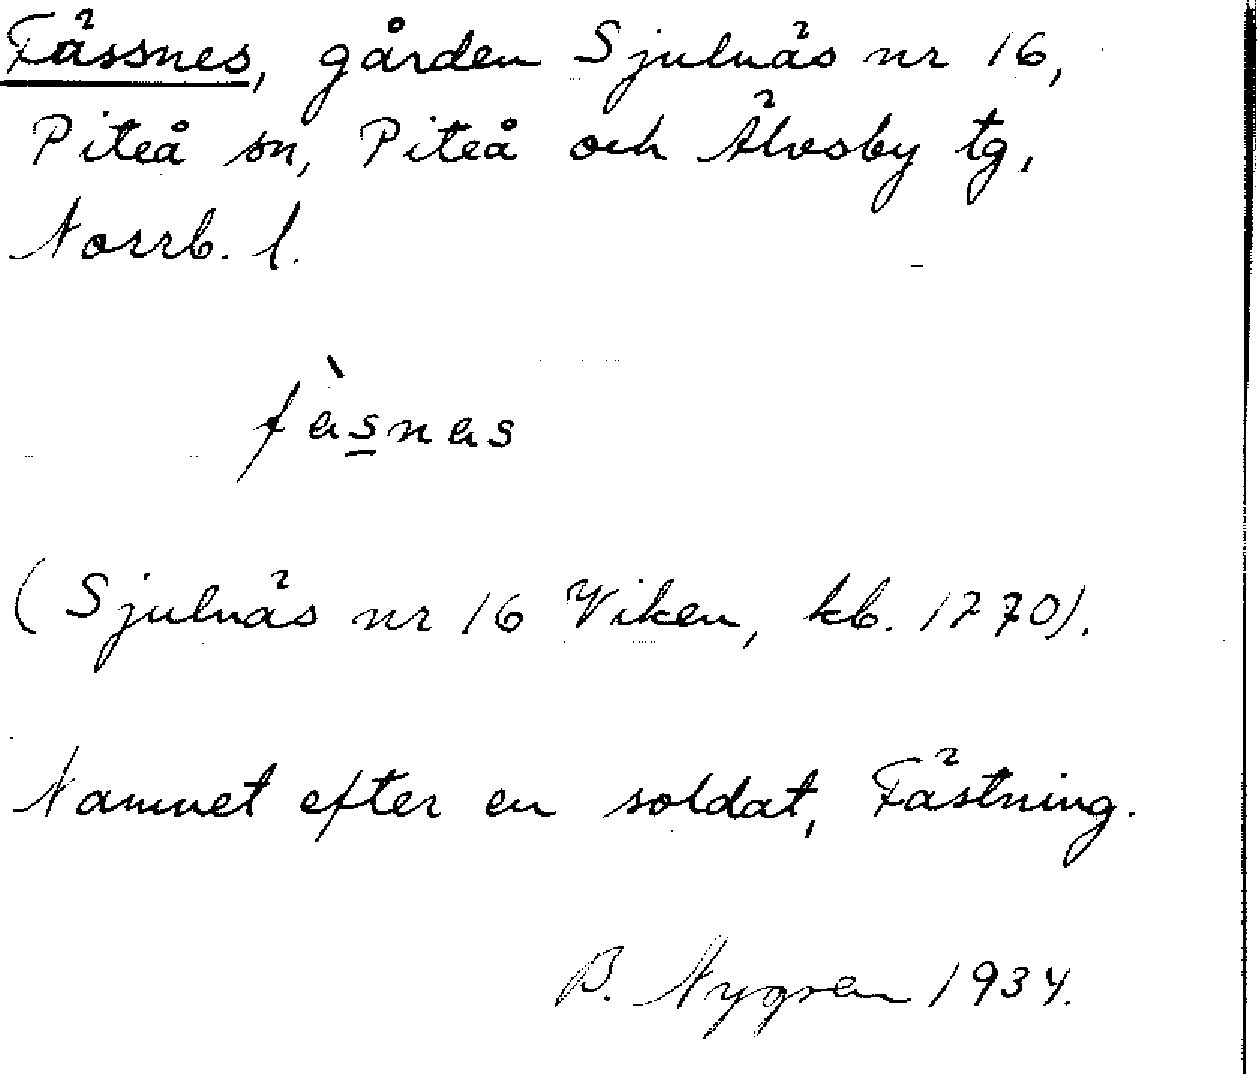 Fässnes, gården Sjulnäs nr 16,
Piteå sn, Piteå och Älvsby tg,
Norrb. l.
fàsnas
(Sjulnäs nr 16 Viken, kb. 1270).
Namnet efter en soldat, Fästning.
B. Nygren 1934.